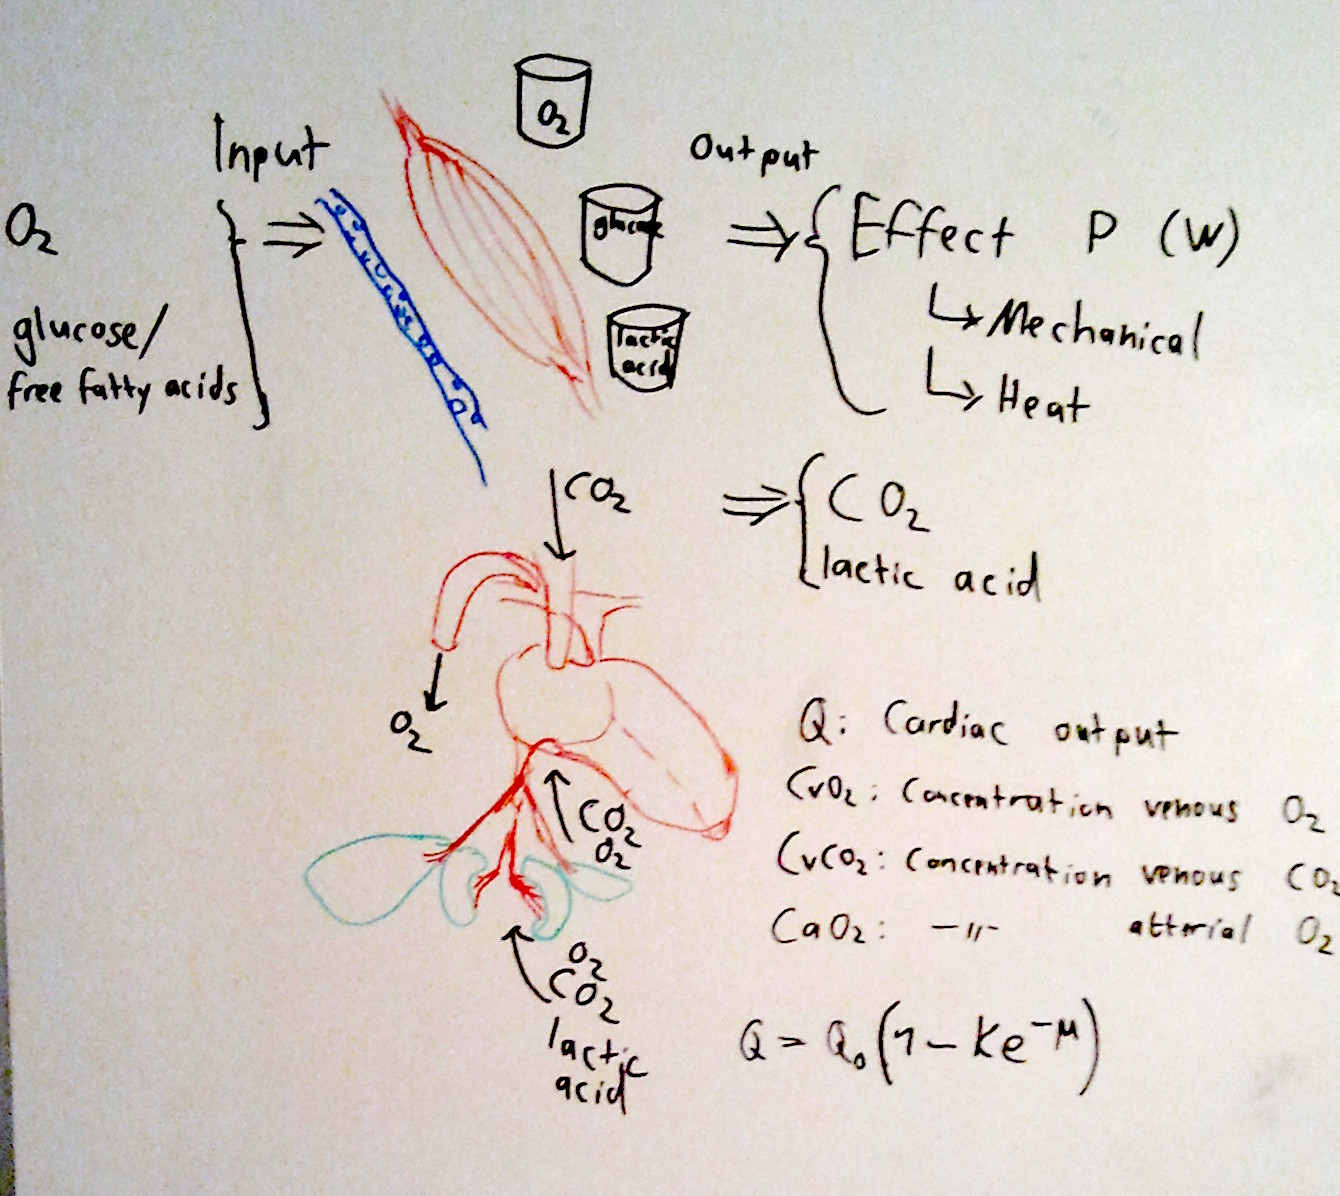 Input
O₂
glucose/
free fatty acids
O₂
glucose
lactic
acid
Output
Effect P (W)
Mechanical
Heat
CO₂
lactic acid
CO₂
O₂
CO₂
O₂
O₂
CO₂
lactic
acid
Q: Cardiac output
CvO₂: Concentration venous O₂
CvCO₂: Concentration venous CO₂
CaO₂: -〃- atterial O₂
Q = Q₀(1 - Ke^-μ)